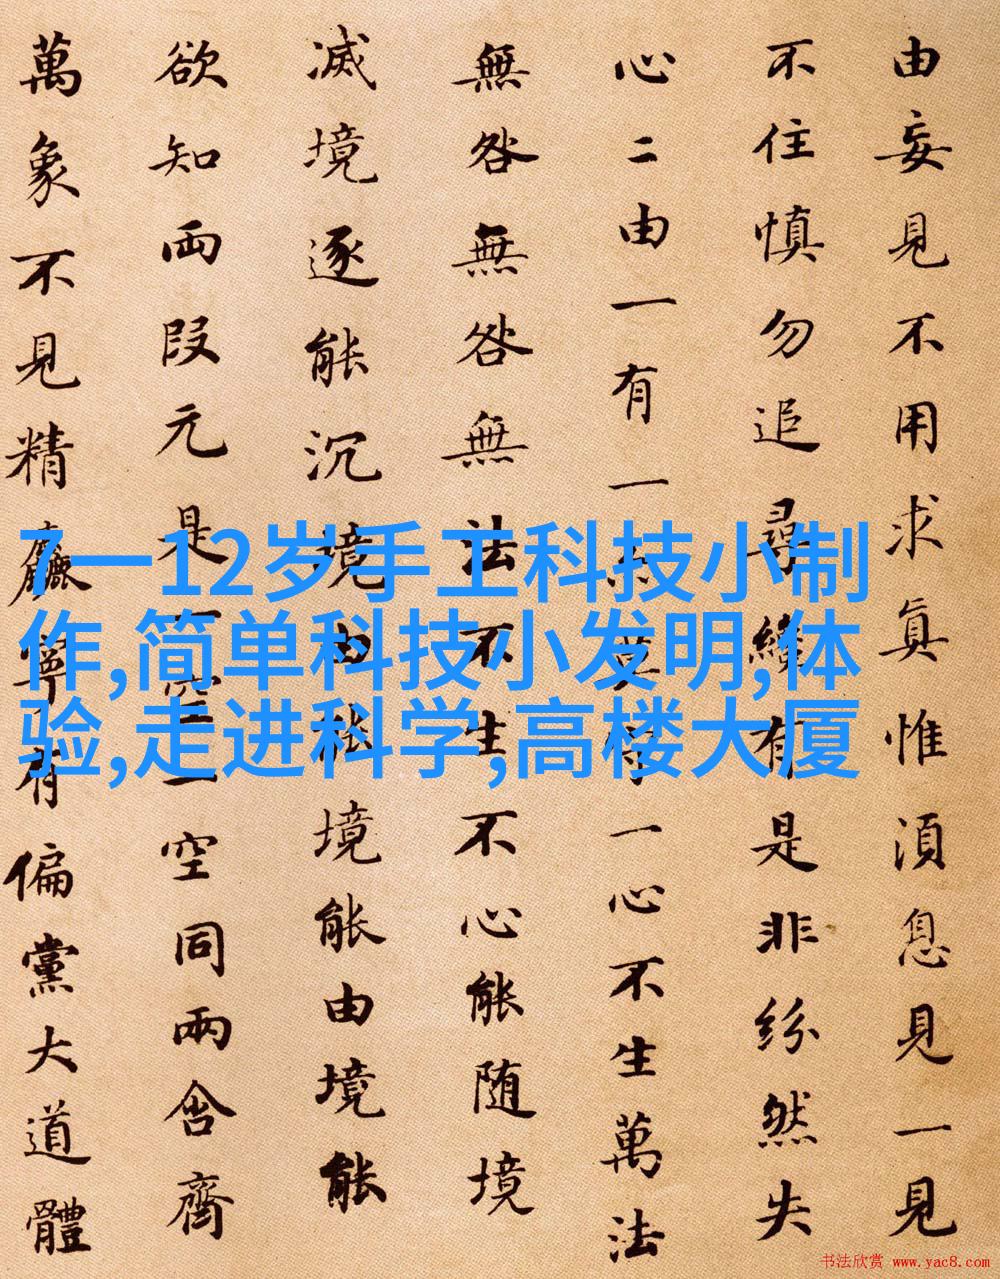 由妄見不用求真惟須息見一見
不住慎勿追尋纔有是非紛然失
心二由一有一亦莫守一心不生萬法
無咎無咎無法不生不心能随境
滅境逐能沉境由能境能由境能
欲知両段元是一空一空同兩含齊
萬象不見精麤寧有偏黨大道體
7一12岁手工科技小制
作,简单科技小发明,体
验,走进科学,高楼大厦
书法欣赏 www.yac8.com